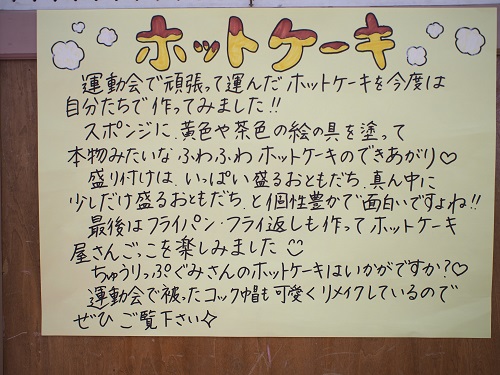 ホットケーキ
運動会で頑張って運んだホットケーキを今度は
自分たちで作ってみました!!
スポンジに、黄色や茶色の絵の具を塗って
本物みたいな ふわふわ ホットケーキのできあがり♡
盛り付けは、いっぱい盛るおともだち、真ん中に
少しだけ盛るおともだち、と個性豊かで面白いですよね!!
最後はフライパン・フライ返しも作って ホットケーキ
屋さんごっこを楽しみました☺
ちゅうりっぷぐみさんのホットケーキはいかがですか?♡
運動会で被ったコック帽も可愛くリメイクしているので
ぜひ ご覧下さい✧